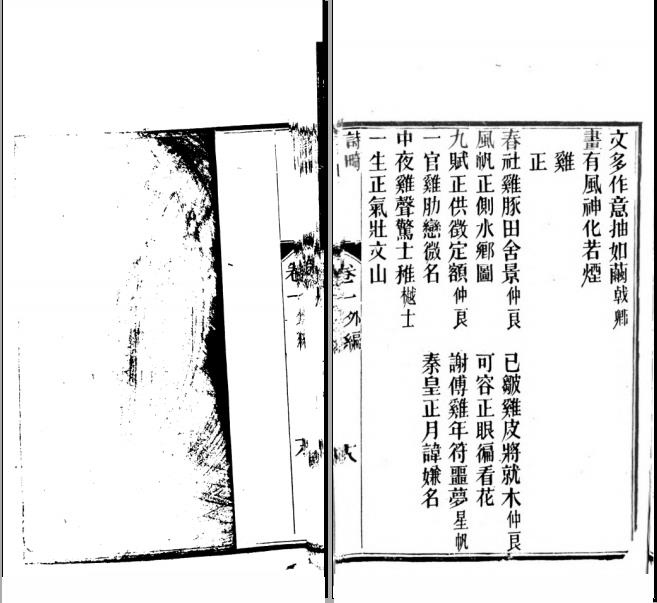 文多作意抽如繭戟卿
畫有風神化若煙
雞
正
春社雞豚田舍景仲良 已皺雞皮將就木仲良
風帆正側水鄉圖 可容正眼徧看花
九賦正供徵定額仲良 謝傅雞年符噩夢星帆
一官雞肋戀微名 秦皇正月諱嫌名
中夜雞聲驚士稚樾士
一生正氣壯文山
詩畸 卷二外編